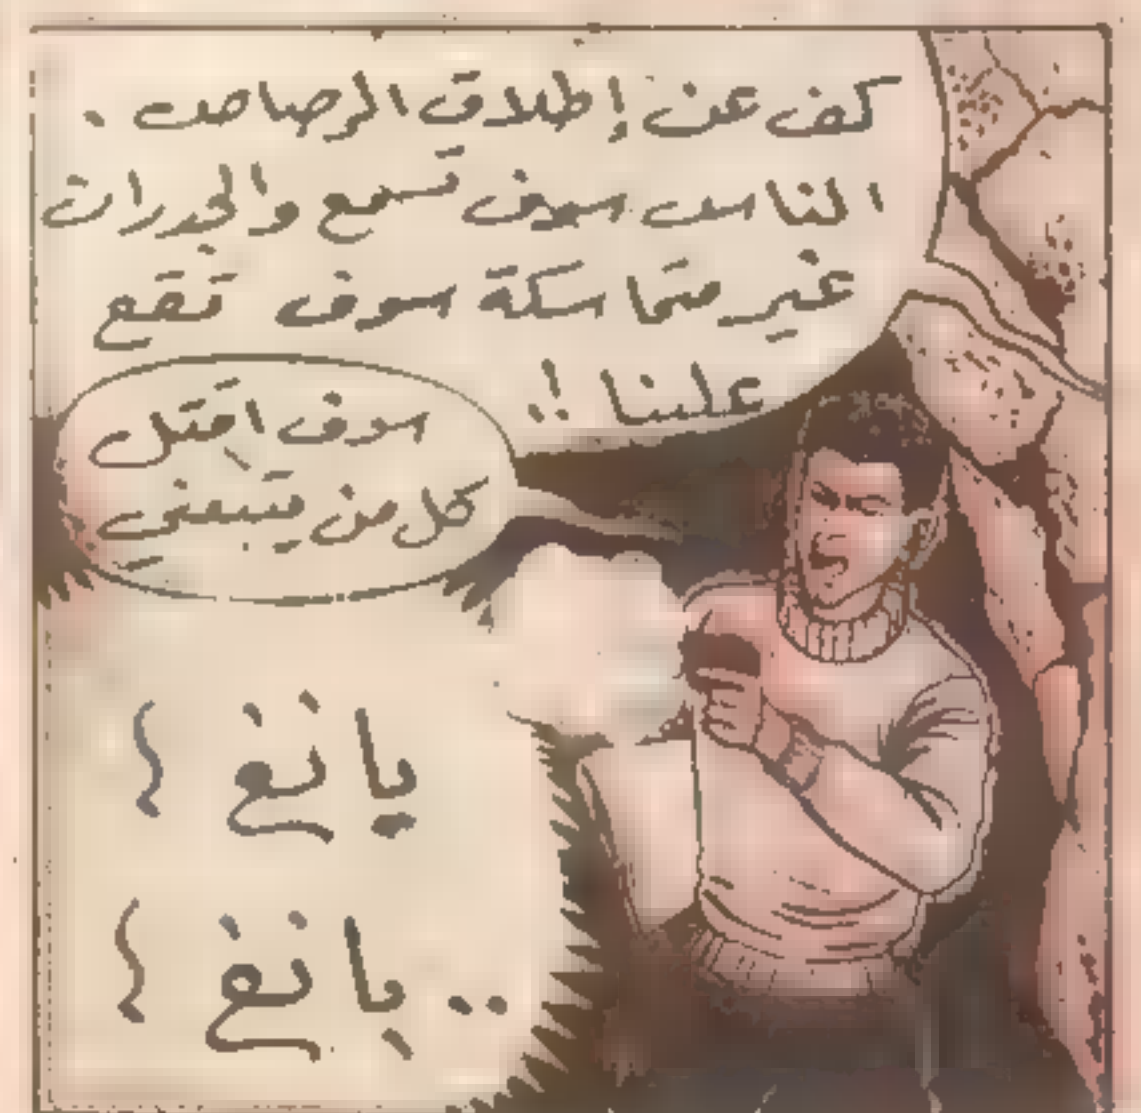 كف عن إطلاق الرصاص .
الناس سوف تسمع والجدران
غير متماسكة سوف تقع
علينا !!
سوف اقتل
كل من يتبعني
بانغ
.. بانغ